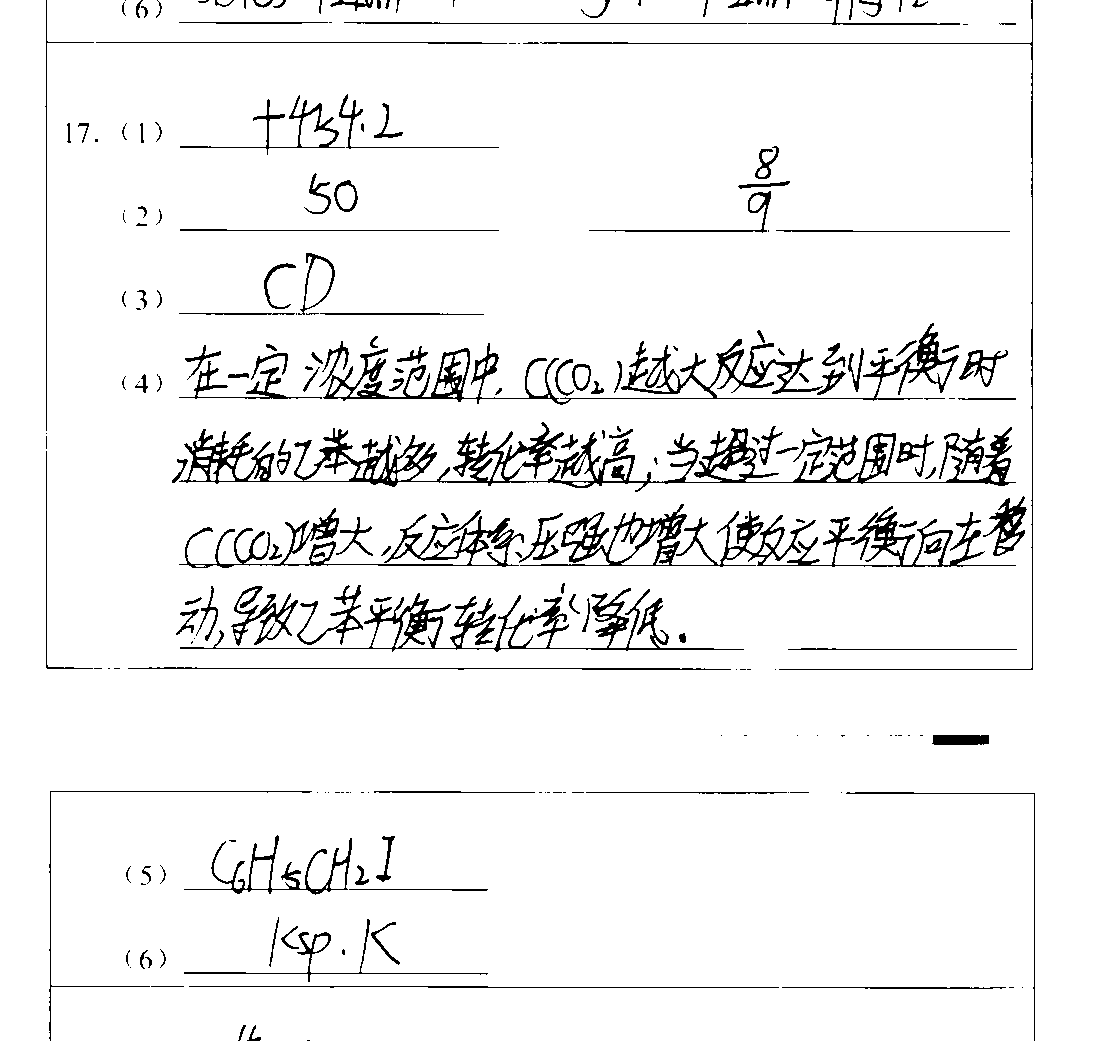 (6)
17.(1) +434.2
(2) 50 8/9
(3) CD
(4) 在一定浓度范围中, C(CO₂)越大反应达到平衡时
消耗的乙苯越多,转化率越高;当超过一定范围时,随着
C(CO₂)增大,反应体系压强也增大使反应平衡向左移
动,导致乙苯平衡转化率降低.
(5) C₆H₅CH₂I
(6) Ksp·K